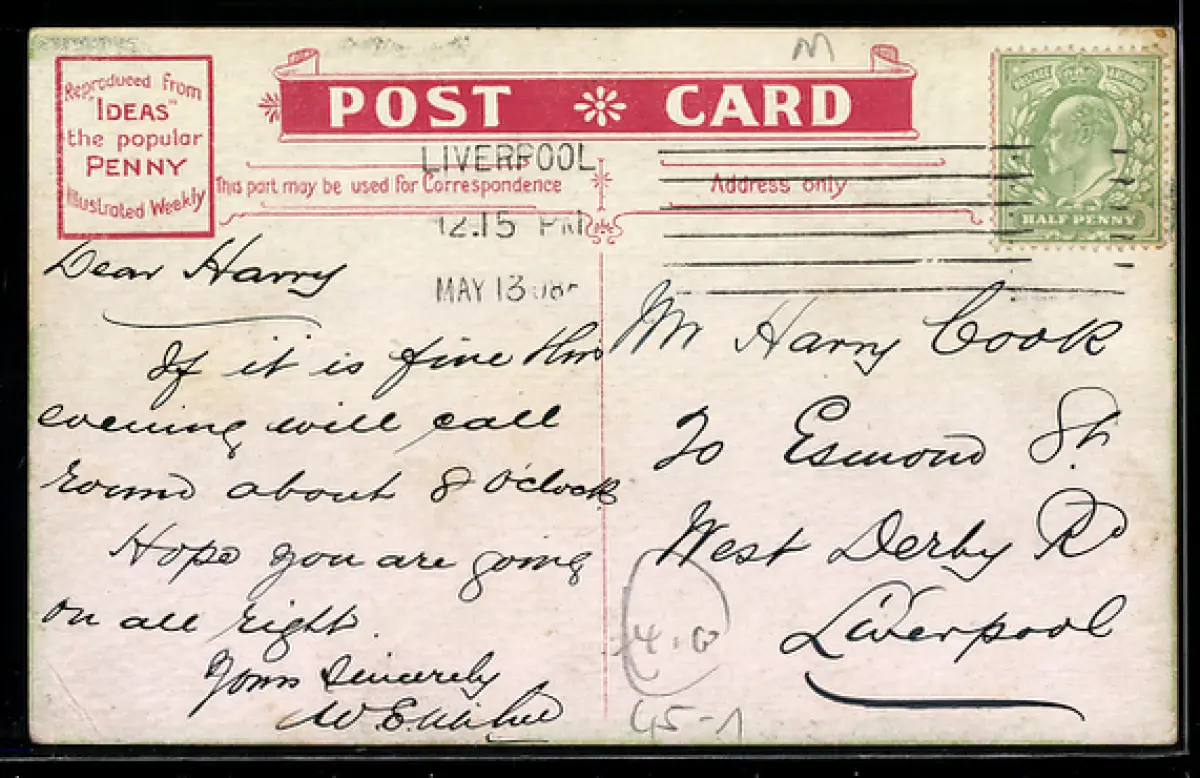 M
Reproduced from
"IDEAS"
the popular
PENNY
Illustrated Weekly
POST CARD
This part may be used for Correspondence
Address only
LIVERPOOL
12.15 PM
MAY 13 08
HALF PENNY
Dear Harry
If it is fine this
evening will call
round about 8 O'clock
Hope you are going
on all right.
Yours Sincerely
Mr Harry Cook
Esmond St.
West Derby Rd
Liverpool
45-1